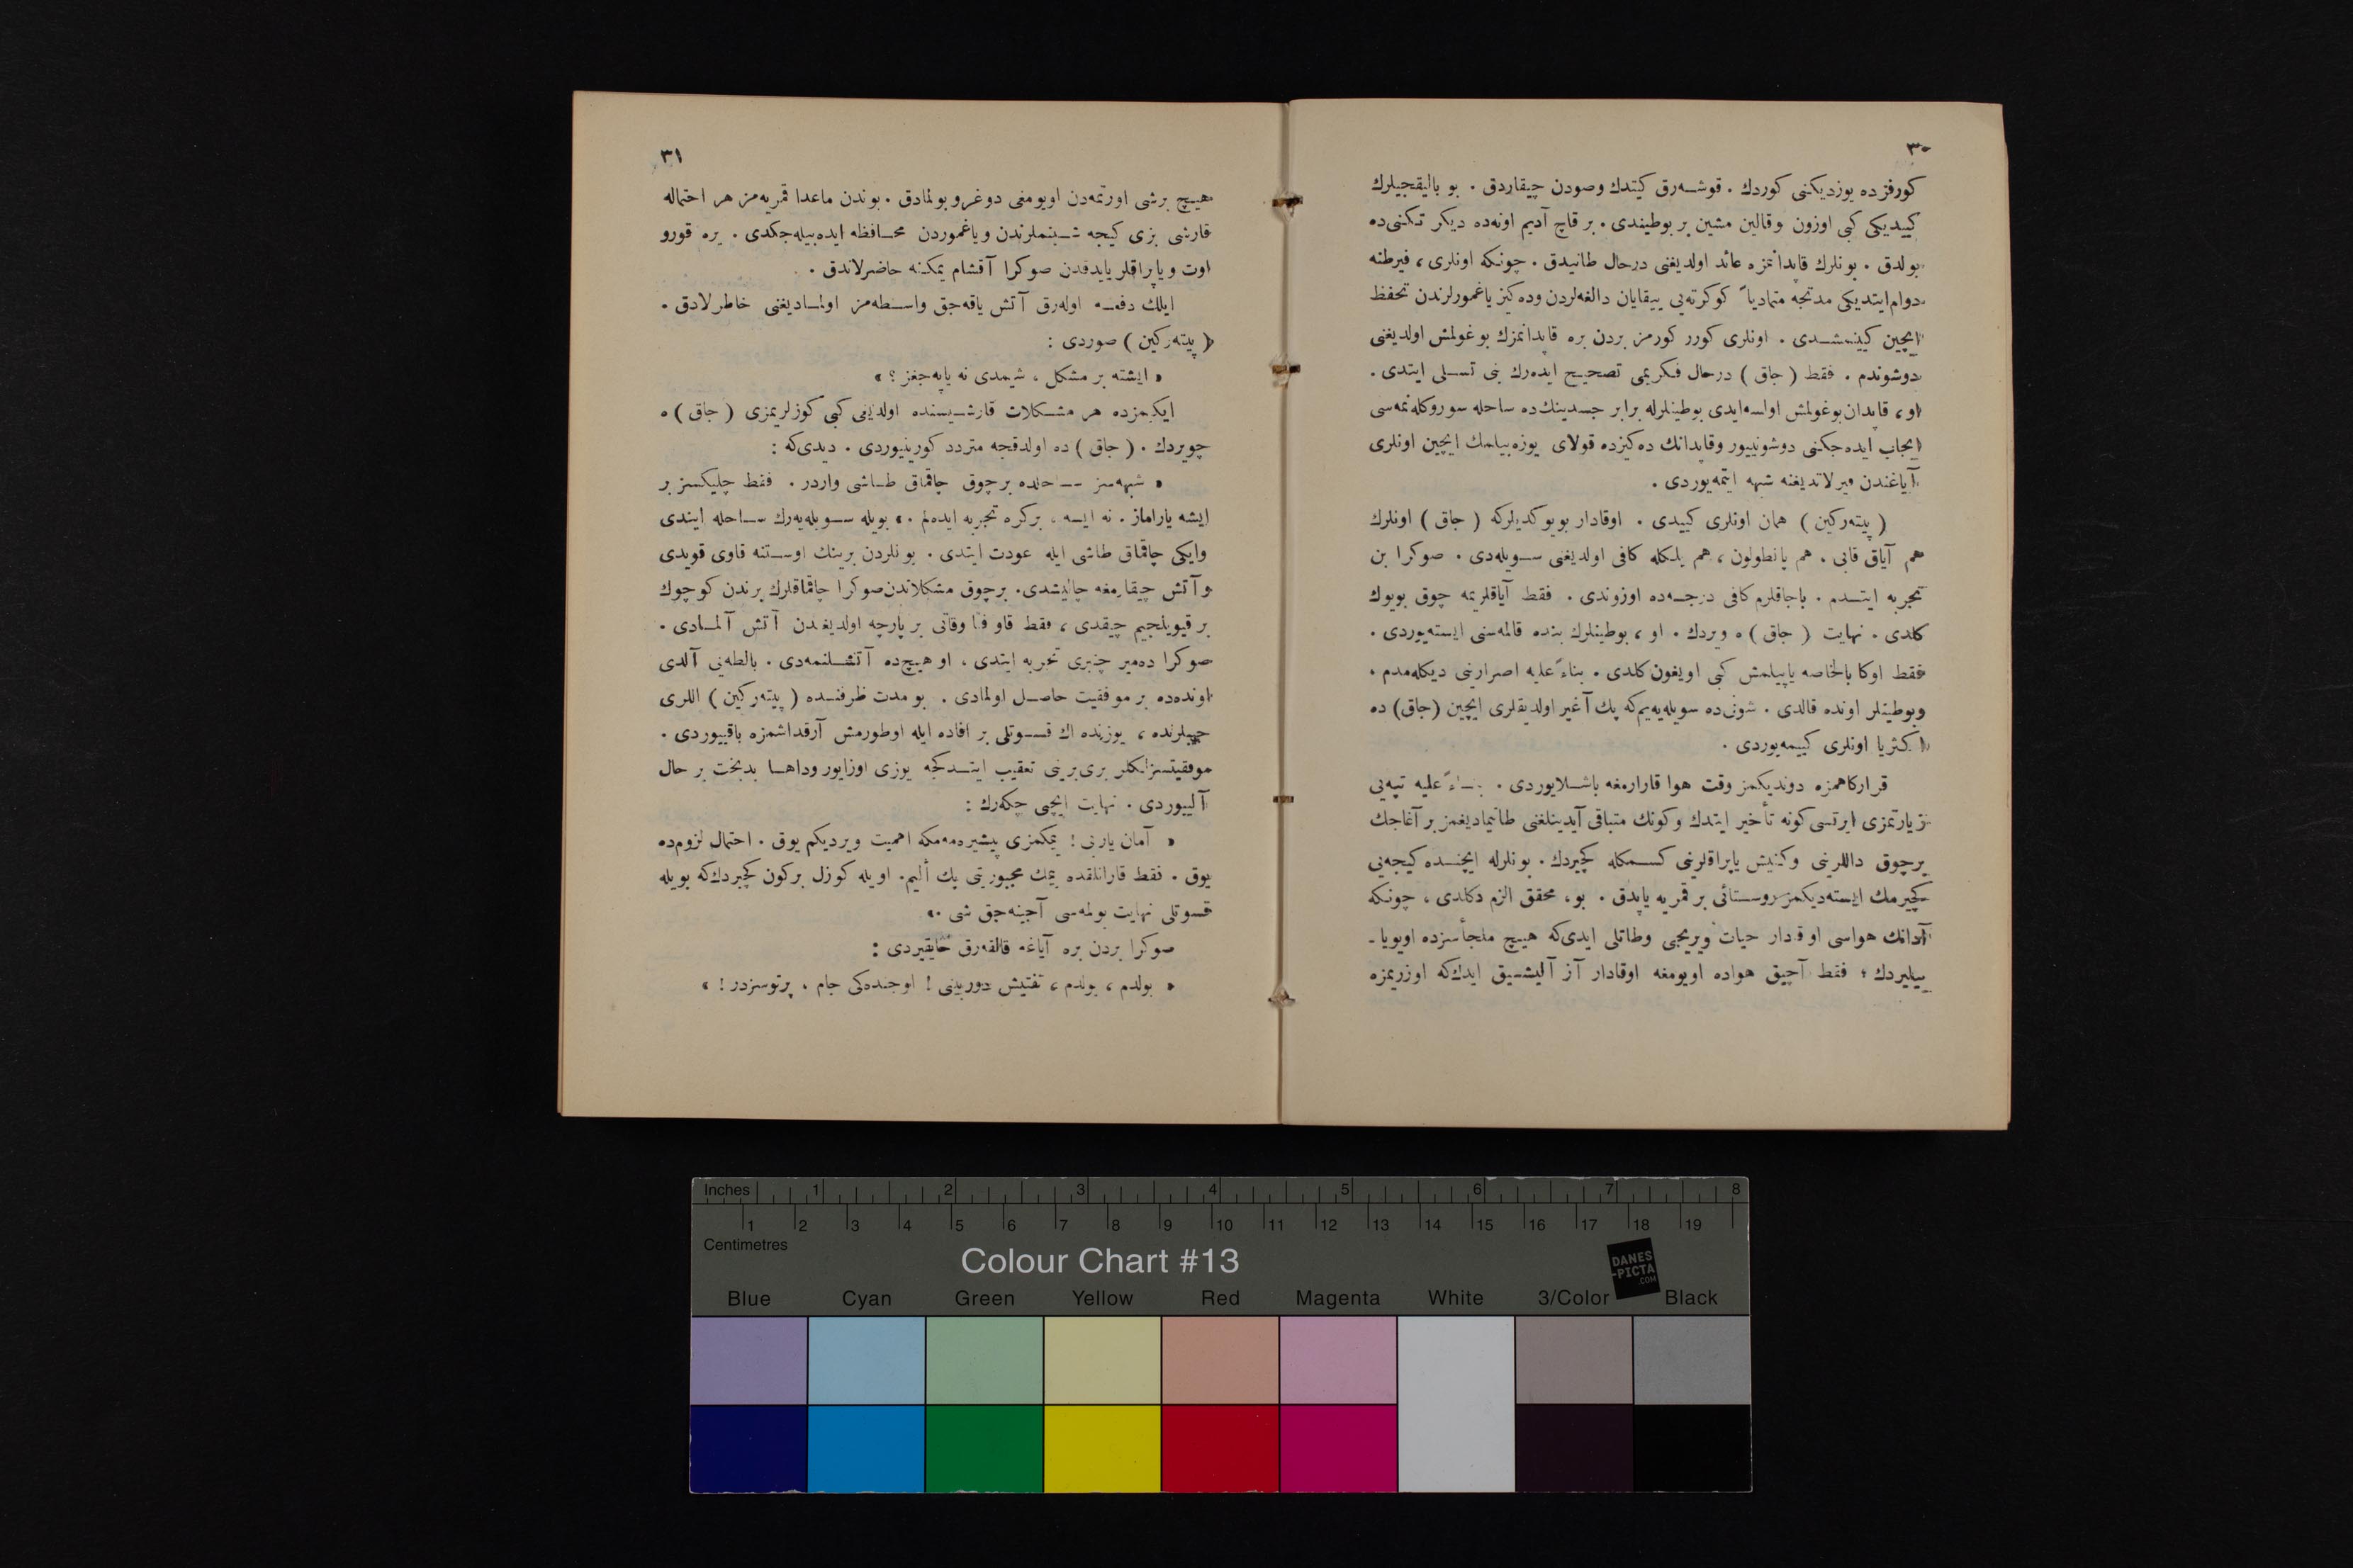 ٣٠
كورفزده يوزديكنى كوردك . قوشه‌رق كيتدك وصودن چيقاردق . بو باليقجيلرك
كييديكى كبى اوزون وقالين مشين بر بوطيندى . بر قاچ آديم اونه‌ده ديكر تكنى‌ده
بولدق . بونلرك قاپدانمزه عائد اولديغنى درحال طانيدق . چونكه اونلرى ، فيرطنه
دوام ايتديكى مدتجه متمادياً كوكرته‌يى ييقايان دالغه‌لردن وده‌كيز ياغمورلرندن تحفظ
ايچين كيينمشدى . اونلرى كورر كورمز بردن بره قاپدانمزك بوغولمش اولديغنى
دوشوندم . فقط ( جاق ) درحال فكريمى تصحيح ايده‌رك بنى تسلى ايتدى .
او ، قاپدان بوغولمش اولسه‌ايدى بوطينلرله برابر جسدينك‌ده ساحله سوروكله‌نمه‌سى
ايجاب ايده‌جكنى دوشونييور وقاپدانك ده‌كيزده قولاى يوزه‌بيلمك ايچين اونلرى
آياغندن فيرلاتديغنه شبهه ايتمه‌يوردى .
( پيته‌ركين ) همان اونلرى كييدى . اوقادار بويوكديلركه ( جاق ) اونلرك
هم آياق قابى . هم پانطولون ، هم يلكله كافى اولديغنى سويله‌دى . صوكرا بن
تجربه ايتدم . باجاقلرم كافى درجه‌ده اوزوندى . فقط آياقلريمه چوق بويوك
كلدى . نهايت ( جاق ) ه ويردك . او ، بوطينلرك بنده قالمه‌سنى ايسته‌يوردى .
فقط اوكا بالخاصه ياپيلمش كبى اويغون كلدى . بناءً عليه اصرارينى ديكله‌مدم .
وبوطينلر اونده قالدى . شونى‌ده سويله‌يه‌يم كه پك آغير اولديقلرى ايچين (جاق) ده
اكثريا اونلرى كييمه‌يوردى .
قراركاهمزه دونديكمز وقت هوا قارارمغه باشلايوردى . بناءً عليه تپه‌يى
زيارتمزى ايرتسى كونه تأخير ايتدك وكونك متباقى آيدينلغنى طانيماديغمز بر آغاجك
برچوق داللرينى وكنيش ياپراقلرينى كسمكله كچيردك . بونلرله ايچنده كيجه‌يى
كچيرمك ايسته‌ديكمز روستائى بر قمريه ياپدق . بو ، محقق الزم دكلدى ، چونكه
آدانك هواسى او قدار حيات ويريجى وطاتلى ايدى‌كه هيچ ملجأسزده اويويا ـ
بيليردك ؛ فقط آچيق هواده اويومغه اوقادار آز آليشيق ايدك‌كه اوزريمزه
٣١
هيچ برشى اورتمه‌دن اويومغى دوغرو بولمادق . بوندن ماعدا قمريه‌مز هر احتماله
قارشى بزى كيجه شبنملرندن وياغموردن محافظه ايده‌بيله‌جكدى . يره قورو
اوت وياپراقلر يايدقدن صوكرا آقشام يمكنه حاضرلاندق .
ايلك دفعه اوله‌رق آتش ياقه‌جق واسطه‌مز اولماديغنى خاطرلادق .
( پيته‌ركين ) صوردى :
« ايشته بر مشكل ، شيمدى نه ياپه‌جغز ؟ »
ايكيمزده هر مشكلات قارشيسنده اولديغى كبى كوزلريمزى ( جاق ) ه
چويردك . ( جاق ) ده اولدقجه متردد كورينيوردى . ديدى‌كه :
« شبهه‌سز ساحلده برچوق چاقماق طاشى واردر . فقط چليكسز بر
ايشه ياراماز . نه ايسه ، بركره تجربه ايده‌لم .» بويله سويله‌يه‌رك ساحله ايندى
وايكى چاقماق طاشى ايله عودت ايتدى . بونلردن برينك اوستنه قاوى قويدى
وآتش چيقارمغه چاليشدى . برچوق مشكلاتدن صوكرا چاقماقلرك برندن كوچوك
بر قيويلجيم چيقدى ، فقط قاو فنا وقاتى بر پارچه اولديغندن آتش آلمادى .
صوكرا ده‌مير چنبرى تجربه ايتدى ، او هيچ‌ده آتشلنمه‌دى . بالطه‌يى آلدى
اونده‌ده بر موفقيت حاصل اولمادى . بو مدت ظرفنده ( پيته‌ركين ) اللرى
جيبلرنده ، يوزنده اك قسوتلى بر افاده ايله اوطورمش آرقداشمزه باقييوردى .
موفقيتسزلكلر برى‌برينى تعقيب ايتدكجه يوزى اوزايور وداها بدبخت بر حال
آلييوردى . نهايت ايچنى چكه‌رك :
« آمان ياربى ! يمكمزى پيشيرمه‌مكه اهميت ويرديكم يوق . احتمال لزوم‌ده
يوق . فقط قارانلقده يمك مجبوريتى پك أليم . اويله كوزل بركون كچيردك‌كه بويله
قسوتلى نهايت بولمه‌سى آجينه‌جق شى .»
صوكرا بردن بره آياغه قالقه‌رق حايقيردى :
« بولدم ، بولدم ، تفتيش دوربينى ! اوجنده‌كى جام ، پرتوسزدر ! »
Inches 1 2 3 4 5 6 7 8
1 2 3 4 5 6 7 8 9 10 11 12 13 14 15 16 17 18 19
Centimetres
Colour Chart #13
DANES
-PICTA
.COM
Blue Cyan Green Yellow Red Magenta White 3/Color Black